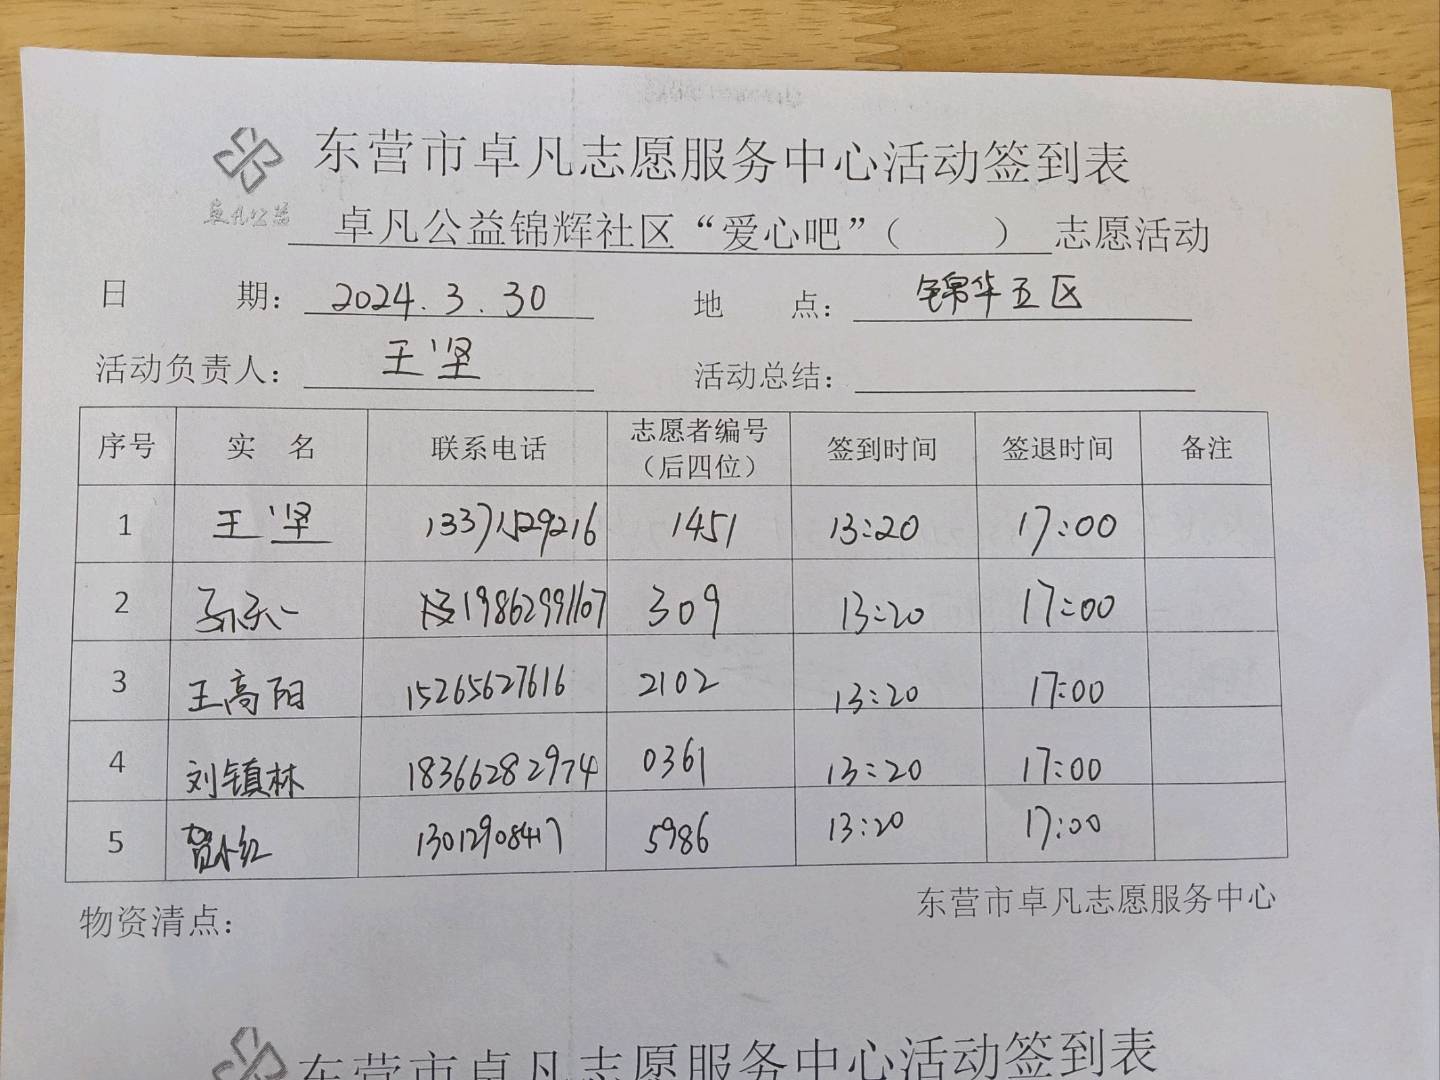 东营市卓凡志愿服务中心活动签到表
卓凡公益
卓凡公益锦辉社区“爱心吧”（ ）志愿活动
日 期： 2024.3.30 地 点： 锦华五区
活动负责人： 王坚 活动总结：
序号 实 名 联系电话 志愿者编号（后四位） 签到时间 签退时间 备注
1 王坚 13371529216 1451 13:20 17:00
2 孙天一 19862991107 309 13:20 17:00
3 王高阳 15265627616 2102 13:20 17:00
4 刘镇林 18366282974 0361 13:20 17:00
5 贺小红 13012908417 5986 13:20 17:00
物资清点： 东营市卓凡志愿服务中心
东营市卓凡志愿服务中心活动签到表